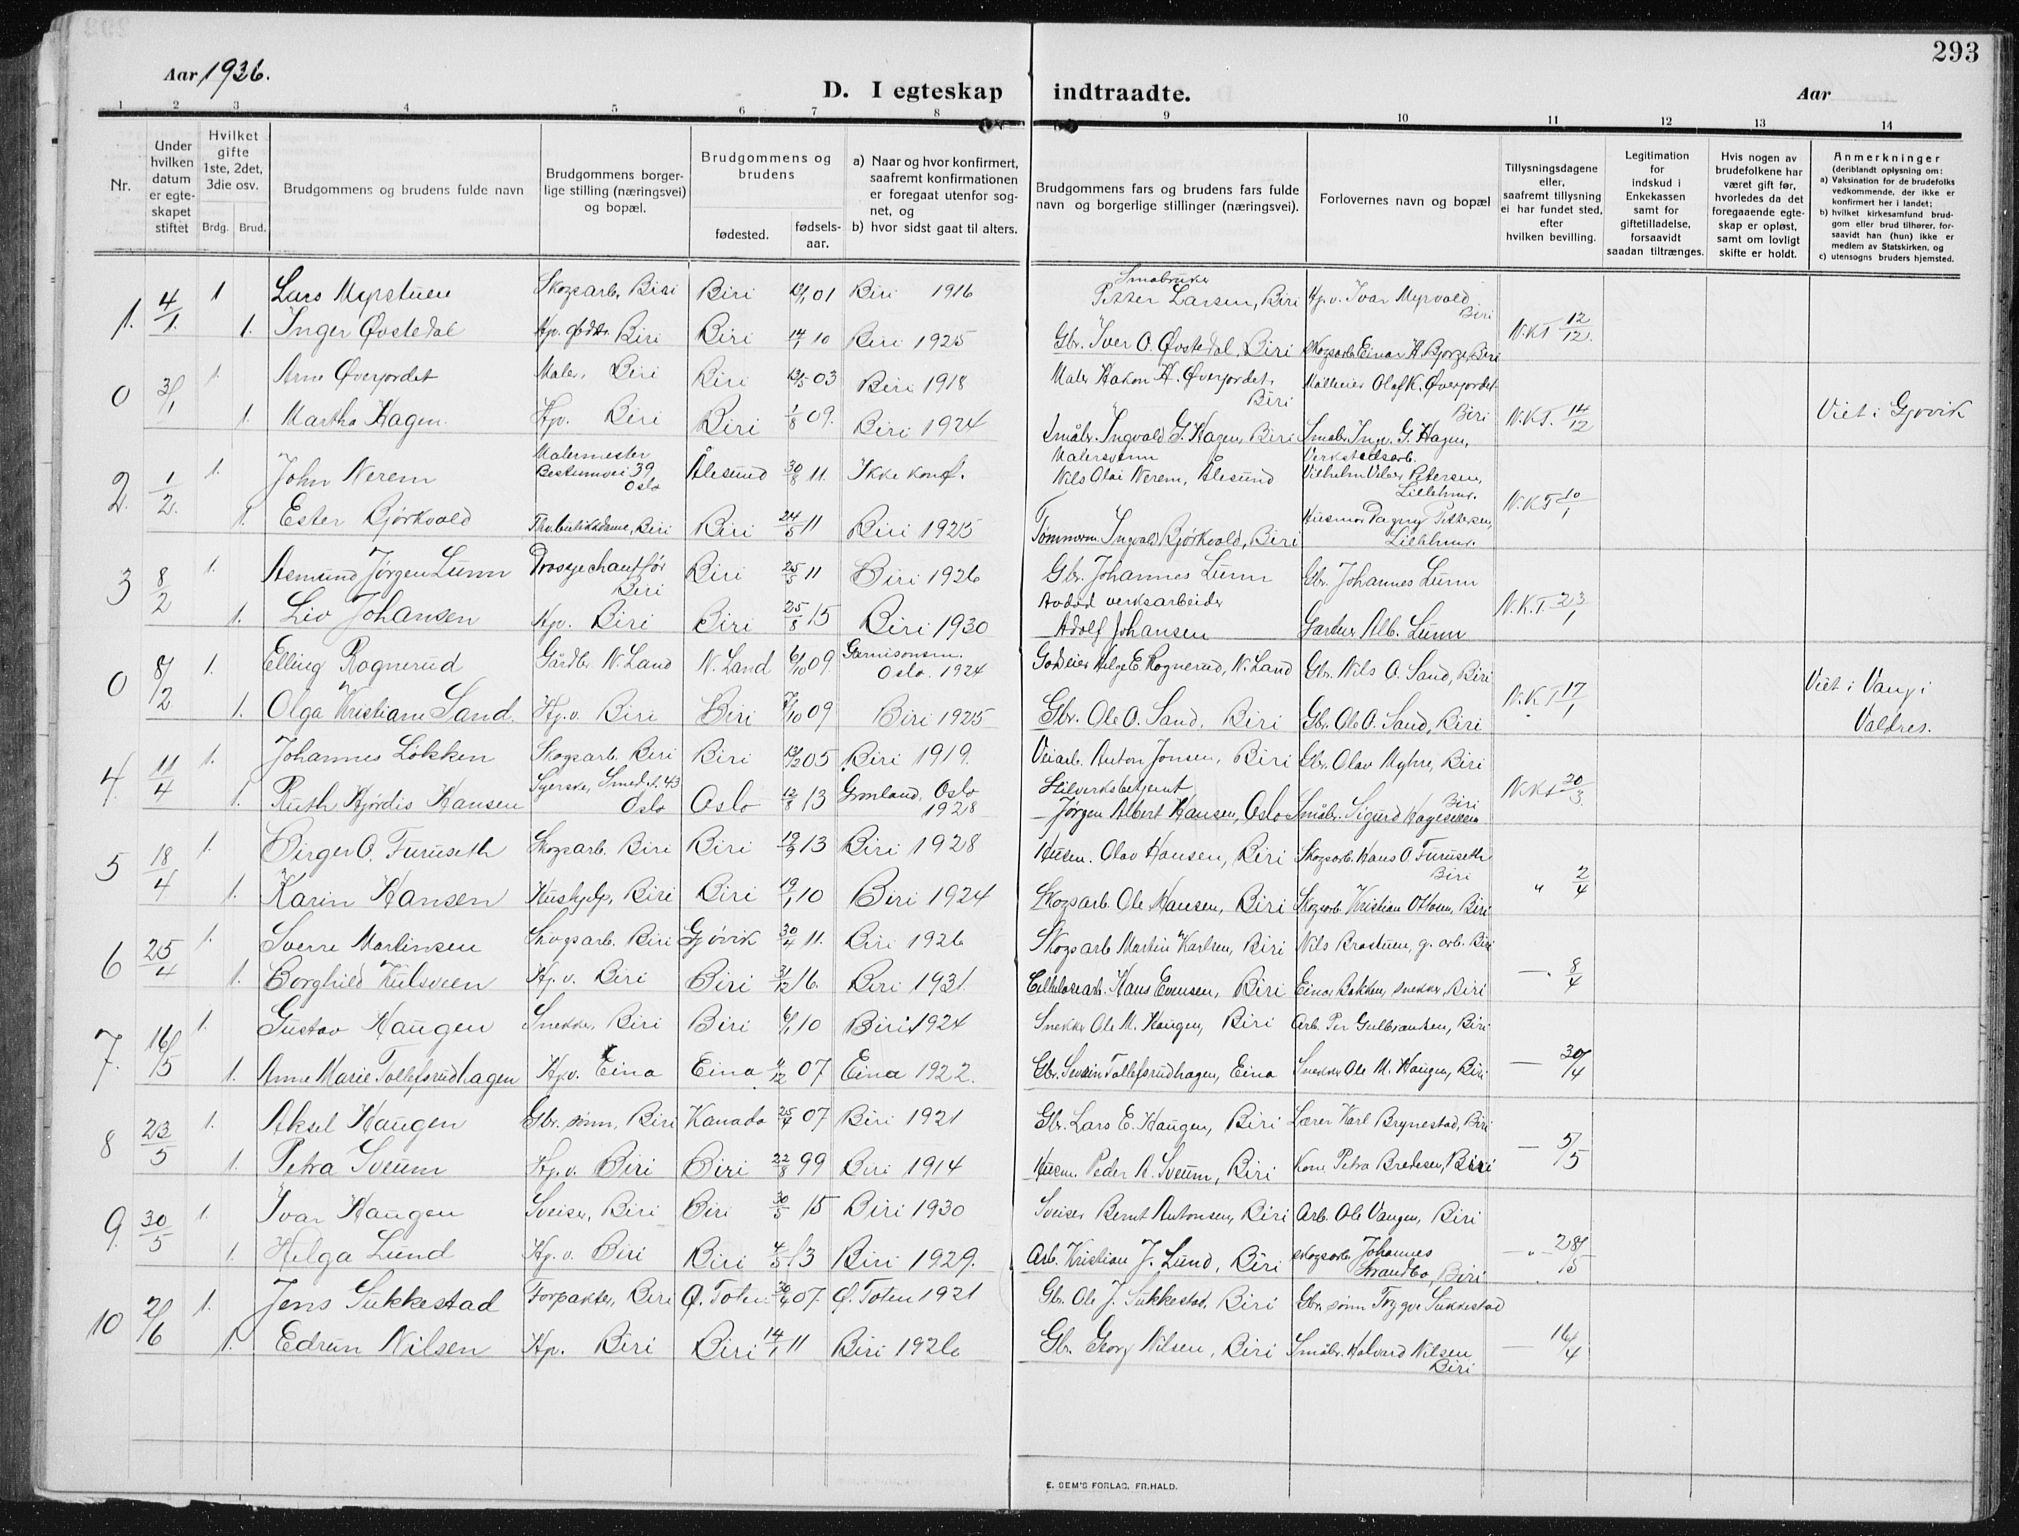 293
Aar 1936.
D. I egteskap indtraadte.
Aar
1 2 3 4 5 6 7 8 9 10 11 12 13 14
Nr.
Under hvilken datum er egteskapet stiftet
Hvilket gifte 1ste, 2det, 3die osv.
Brdg. Brud.
Brudgommens og brudens fulde navn
Brudgommens borgerlige stilling (næringsvei) og bopæl.
Brudgommens og brudens
fødested. fødselsaar.
a) Naar og hvor konfirmert, saafremt konfirmationen er foregaat utenfor sognet, og
b) hvor sidst gaat til alters.
Brudgommens fars og brudens fars fulde navn og borgerlige stillinger (næringsvei).
Forlovernes navn og bopæl
Tillysningsdagene eller, saafremt tillysning ei har fundet sted, efter hvilken bevilling.
Legitimation for indskud i Enkekassen samt for giftetilladelse, forsaavidt saadan tiltrænges.
Hvis nogen av brudefolkene har været gift før, hvorledes da det foregaaende egteskap er opløst, samt om lovligt skifte er holdt.
Anmerkninger (deriblandt oplysning om:
a) Vaksination for de brudefolks vedkommende, der ikke er konfirmert her i landet;
b) hvilket kirkesamfund brudgom eller brud tilhører, forsaavidt han (hun) ikke er medlem av Statskirken, og
c) utensogns bruders hjemsted.
1. 4/1. 1 Lars Myrstuen Skogsarb. Biri Biri 01 Biri 1916 Småbruker Petter Larsen, Biri Hp.v. Ivar Myrvold Biri
1. Inger Øvstedal Biri Biri 14/1 10 Biri 1925 Gbr. Iver O. Øvstedal, Biri Skogsarb. Einar H. Bjorge, Biri N.K.T 12/12.
0 3/1 1. Arne Øverjordet Maler, Biri Biri 03 Biri 1918 Maler Hakon H. Øverjordet, Biri Olaf K. Øverjordet Biri
1. Martha Hagen. Hp. Biri Biri 1/8 09. Biri 1924 Småbr. Ingvald G. Hagen, Biri Småbr. Ingv. G. Hagen, N.K.T. 14/12 Viet i Gjøvik
2. 1/2. 1. John Nerem Malermester Bestumvei 39 Oslo Ålesund 30/8 11. Ikke konf. Malersvenn Nils Olai Nerem, Ålesund Verkstedsarb. Vilhelm Petersen, Lillehmr.
1. Ester Bjørkvold Biri Biri 24/5 11 Biri 1925 Tømmerm. Ingvald Bjørkvold, Biri Husmor Dagny Pettersen, Lillehmr. N.K.T 10/1
3 8/2 1. Asmund Jørgen Lunn Drosjechauffør Biri Biri 25/5 11 Biri 1926 Gbr. Johannes Lunn Gbr. Johannes Lunn
1. Liv Johansen Hp. Biri Biri 25/8 15 Biri 1930 Avdød verksarbeider Adolf Johansen Gartner Alb. Lunn N.K.T. 23/1
0 8/2 1. Elling Rognerud Gårdbr. N. Land N. Land 6/10 09. Garnisonsm. Oslo. 1924 Gårdeier Helge E. Rognerud, N. Land Gbr. Nils O. Sand, Biri
1. Olga Kristiane Sand. Hp.v. Biri Biri 09 Biri 1925 Gbr. Ole O. Sand, Biri Gbr. Ole O. Sand, Biri N.K.T 17/1 Viet i Vang i Valdres.
4 11/4 1. Johannes Løkken Skogsarb. Biri Biri 05 Biri 1919. Veiarb. Anton Jonsen, Biri Gbr. Olav Myhre, Biri
1. Ruth Hjørdis Hansen Syerske, Smed.g. 43 Oslo Oslo 12/8 13 Grønland, Oslo 1928 Jørgen Albert Hansen, Oslo Småbr. Sigurd Biri N.K.T 20/3.
5 18/4 1. Birger O. Furuseth Skogsarb. Biri Biri 19/9 13 Biri 1928 Husm. Olav Hansen, Biri Skogsarb. Hans O. Furuseth Biri
1. Karin Hansen Hushjelp, Biri Biri 19/1 10 Biri 1924 Skogsarb. Ole Hansen, Biri Skogsarb. Kristian Ottosen, Biri " 2/4
6 25/4 1. Sverre Martinsen Skogsarb. Biri Gjøvik 30/4 11. Biri 1926 Skogsarb. Martin Karlsen, Biri Nils Brastuen, g. arb. Biri
1. Borghild Kulsveen Hp.v. Biri Biri 31/12 16. Biri 1931. Cellulosearb. Hans Evensen, Biri Einar Bakken, snekker, Biri — 8/4
7. 16/5 1. Gustav Haugen Snekker, Biri Biri 6/1 10 Biri 1924 Snekker Ole M. Haugen, Biri Arb. Per Gulbransen, Biri
1. Anne Marie Tollefsrudhagen Hp.v. Eina Eina 07 Eina 1922. Gbr. Svein Tollefsrudhagen, Eina Snekker Ole M. Haugen, Biri — 30/4
8 23/5 1. Aksel Haugen Gbr. sønn, Biri Kanada 25/4 07 Biri 1921 Gbr. Lars E. Haugen, Biri Lærer Karl Brynestad, Biri
1. Petra Sveum Hp.v. Biri Biri 22/8 99 Biri 1914 Husm. Peder A. Sveum, Biri Kone Petra Bredesen, Biri — 5/5
9. 30/5 1. Ivar Haugen Sveiser, Biri Biri 30/5 15 Biri 1930 Sveiser Bernt Antonsen, Biri Arb. Ole Vangen, Biri
1. Helga Lund Hp.v. Biri Biri 4/5 13 Biri 1929. Arb. Kristian J. Lund, Biri Skogsarb. Johannes Strandbo, Biri — " — 28/5
10 2/6 1. Jens Sukkestad Forpakter, Biri Ø. Toten 07. Ø. Toten 1921 Gbr. Ole J. Sukkestad, Biri Gbr. sønn Trygve Sukkestad
1. Edrun Nilsen Hp. Biri Biri 14/1 11 Biri 1926 Gbr. Georg Nilsen, Biri Småbr. Halvard Nilsen Biri — 16/4
E. SEM'S FORLAG, FR.HALD.